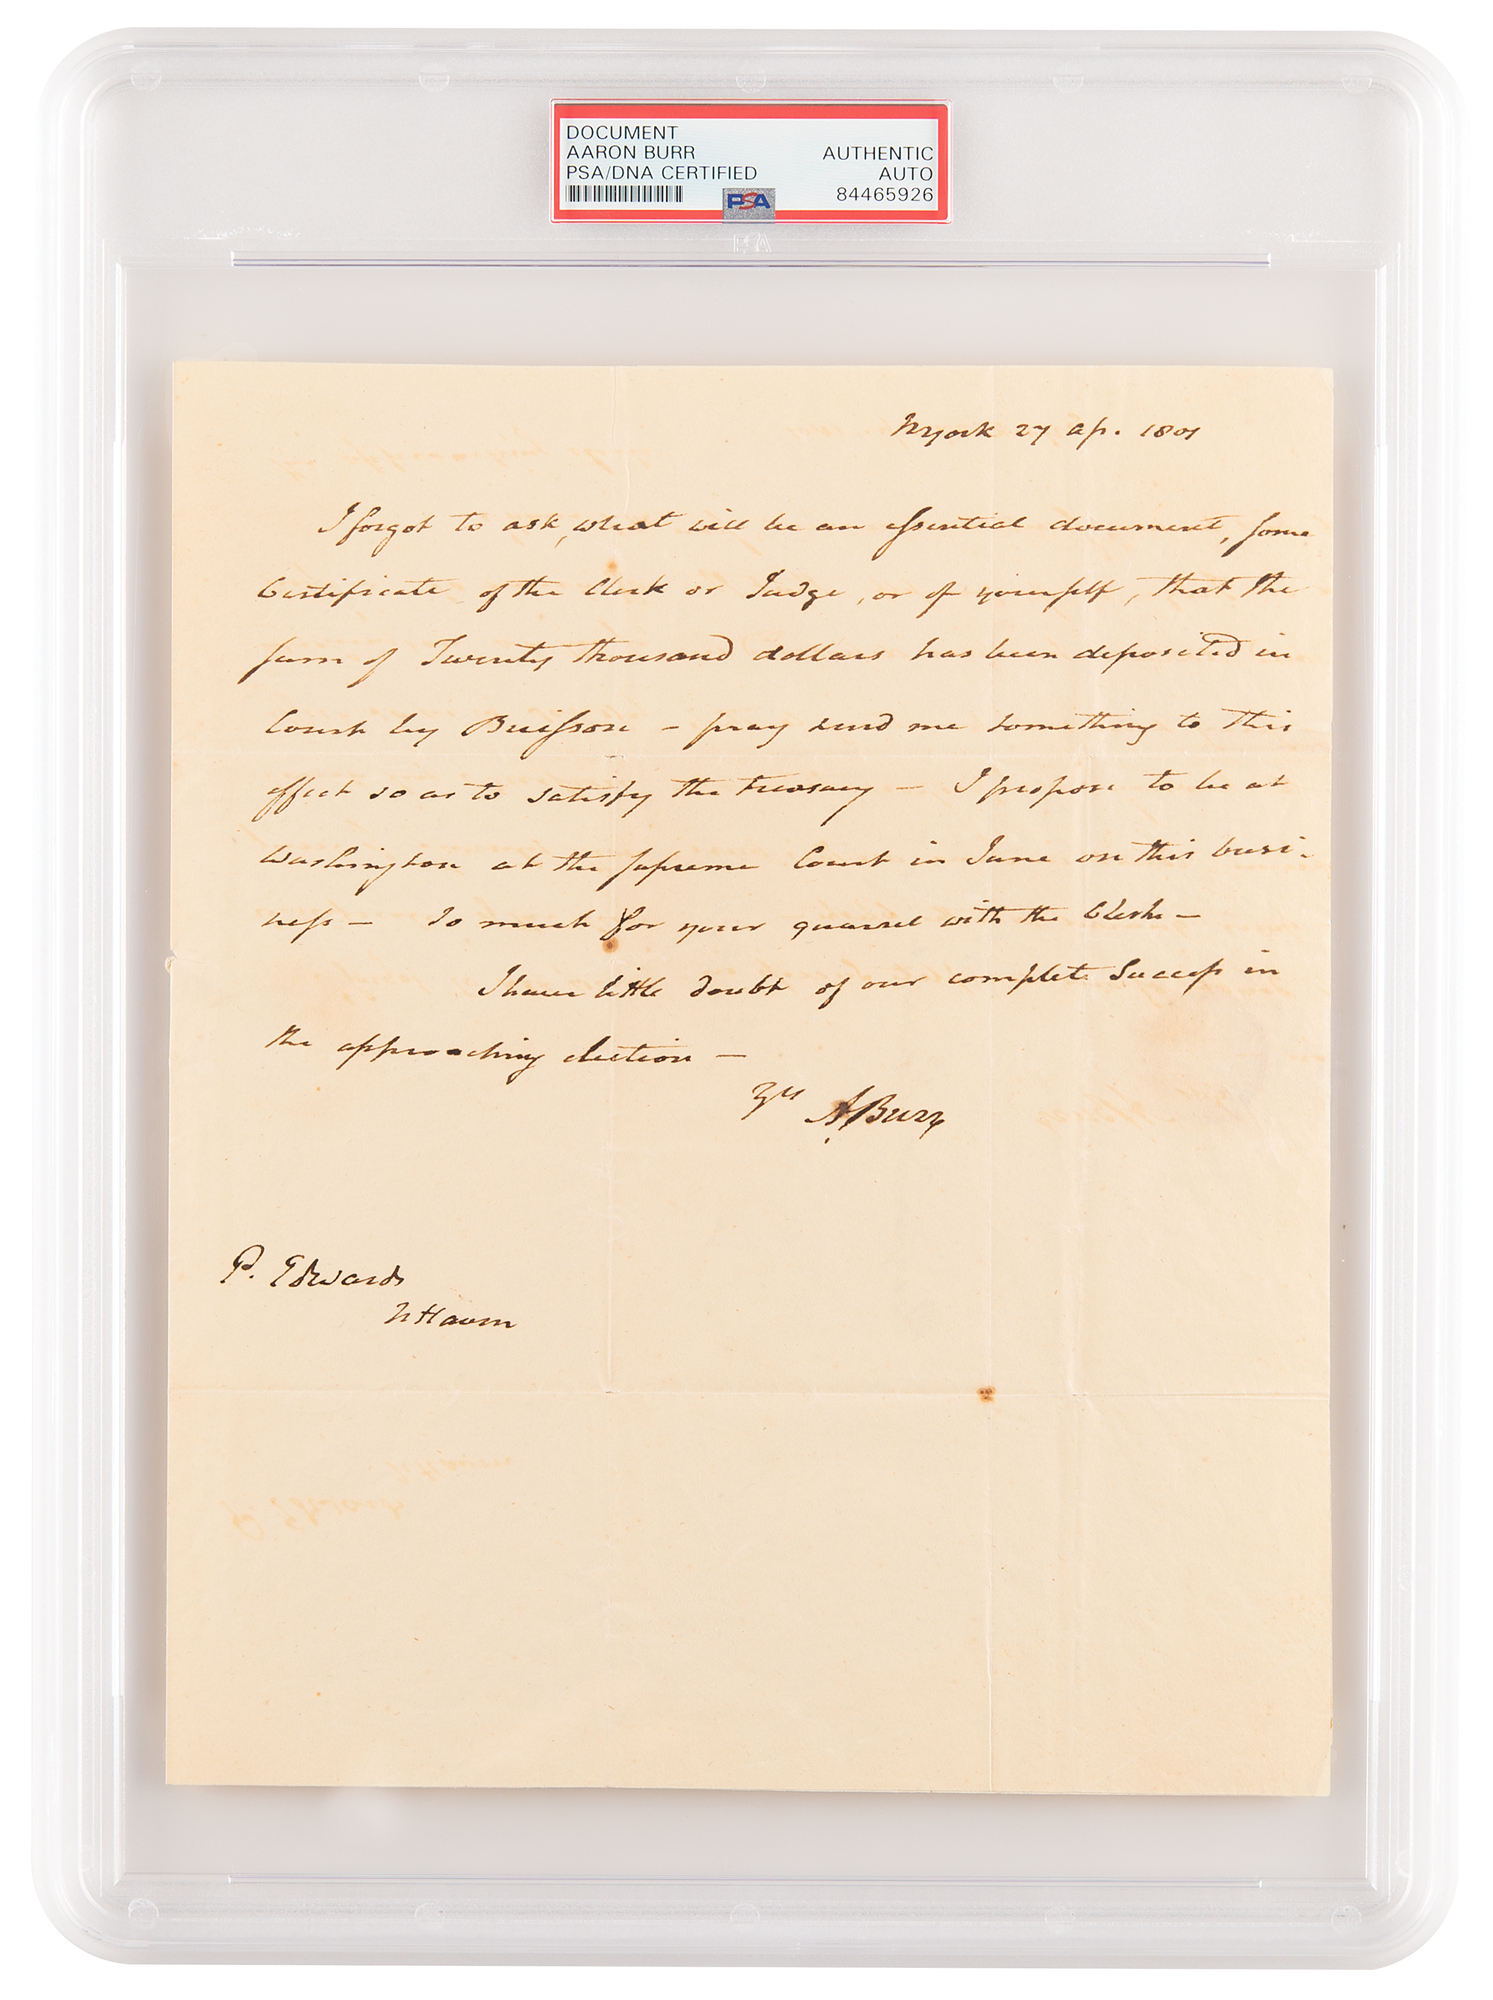 DOCUMENT
AARON BURR
PSA/DNA CERTIFIED
AUTHENTIC
AUTO
84465926
PSA
NYork 27 Ap. 1801
I forgot to ask, what will be an essential document, some
Certificate of the Clerk or Judge, or of yourself, that the
sum of Twenty thousand dollars has been deposited in
Court by Buisson – pray send me something to this
effect so as to satisfy the treasury – I propose to be at
Washington at the supreme Court in June on this busi-
ness – So much for your quarrel with the Clerk –
I have little doubt of our complete Success in
the approaching election –
Yrs A. Burr
P. Edwards
NHaven